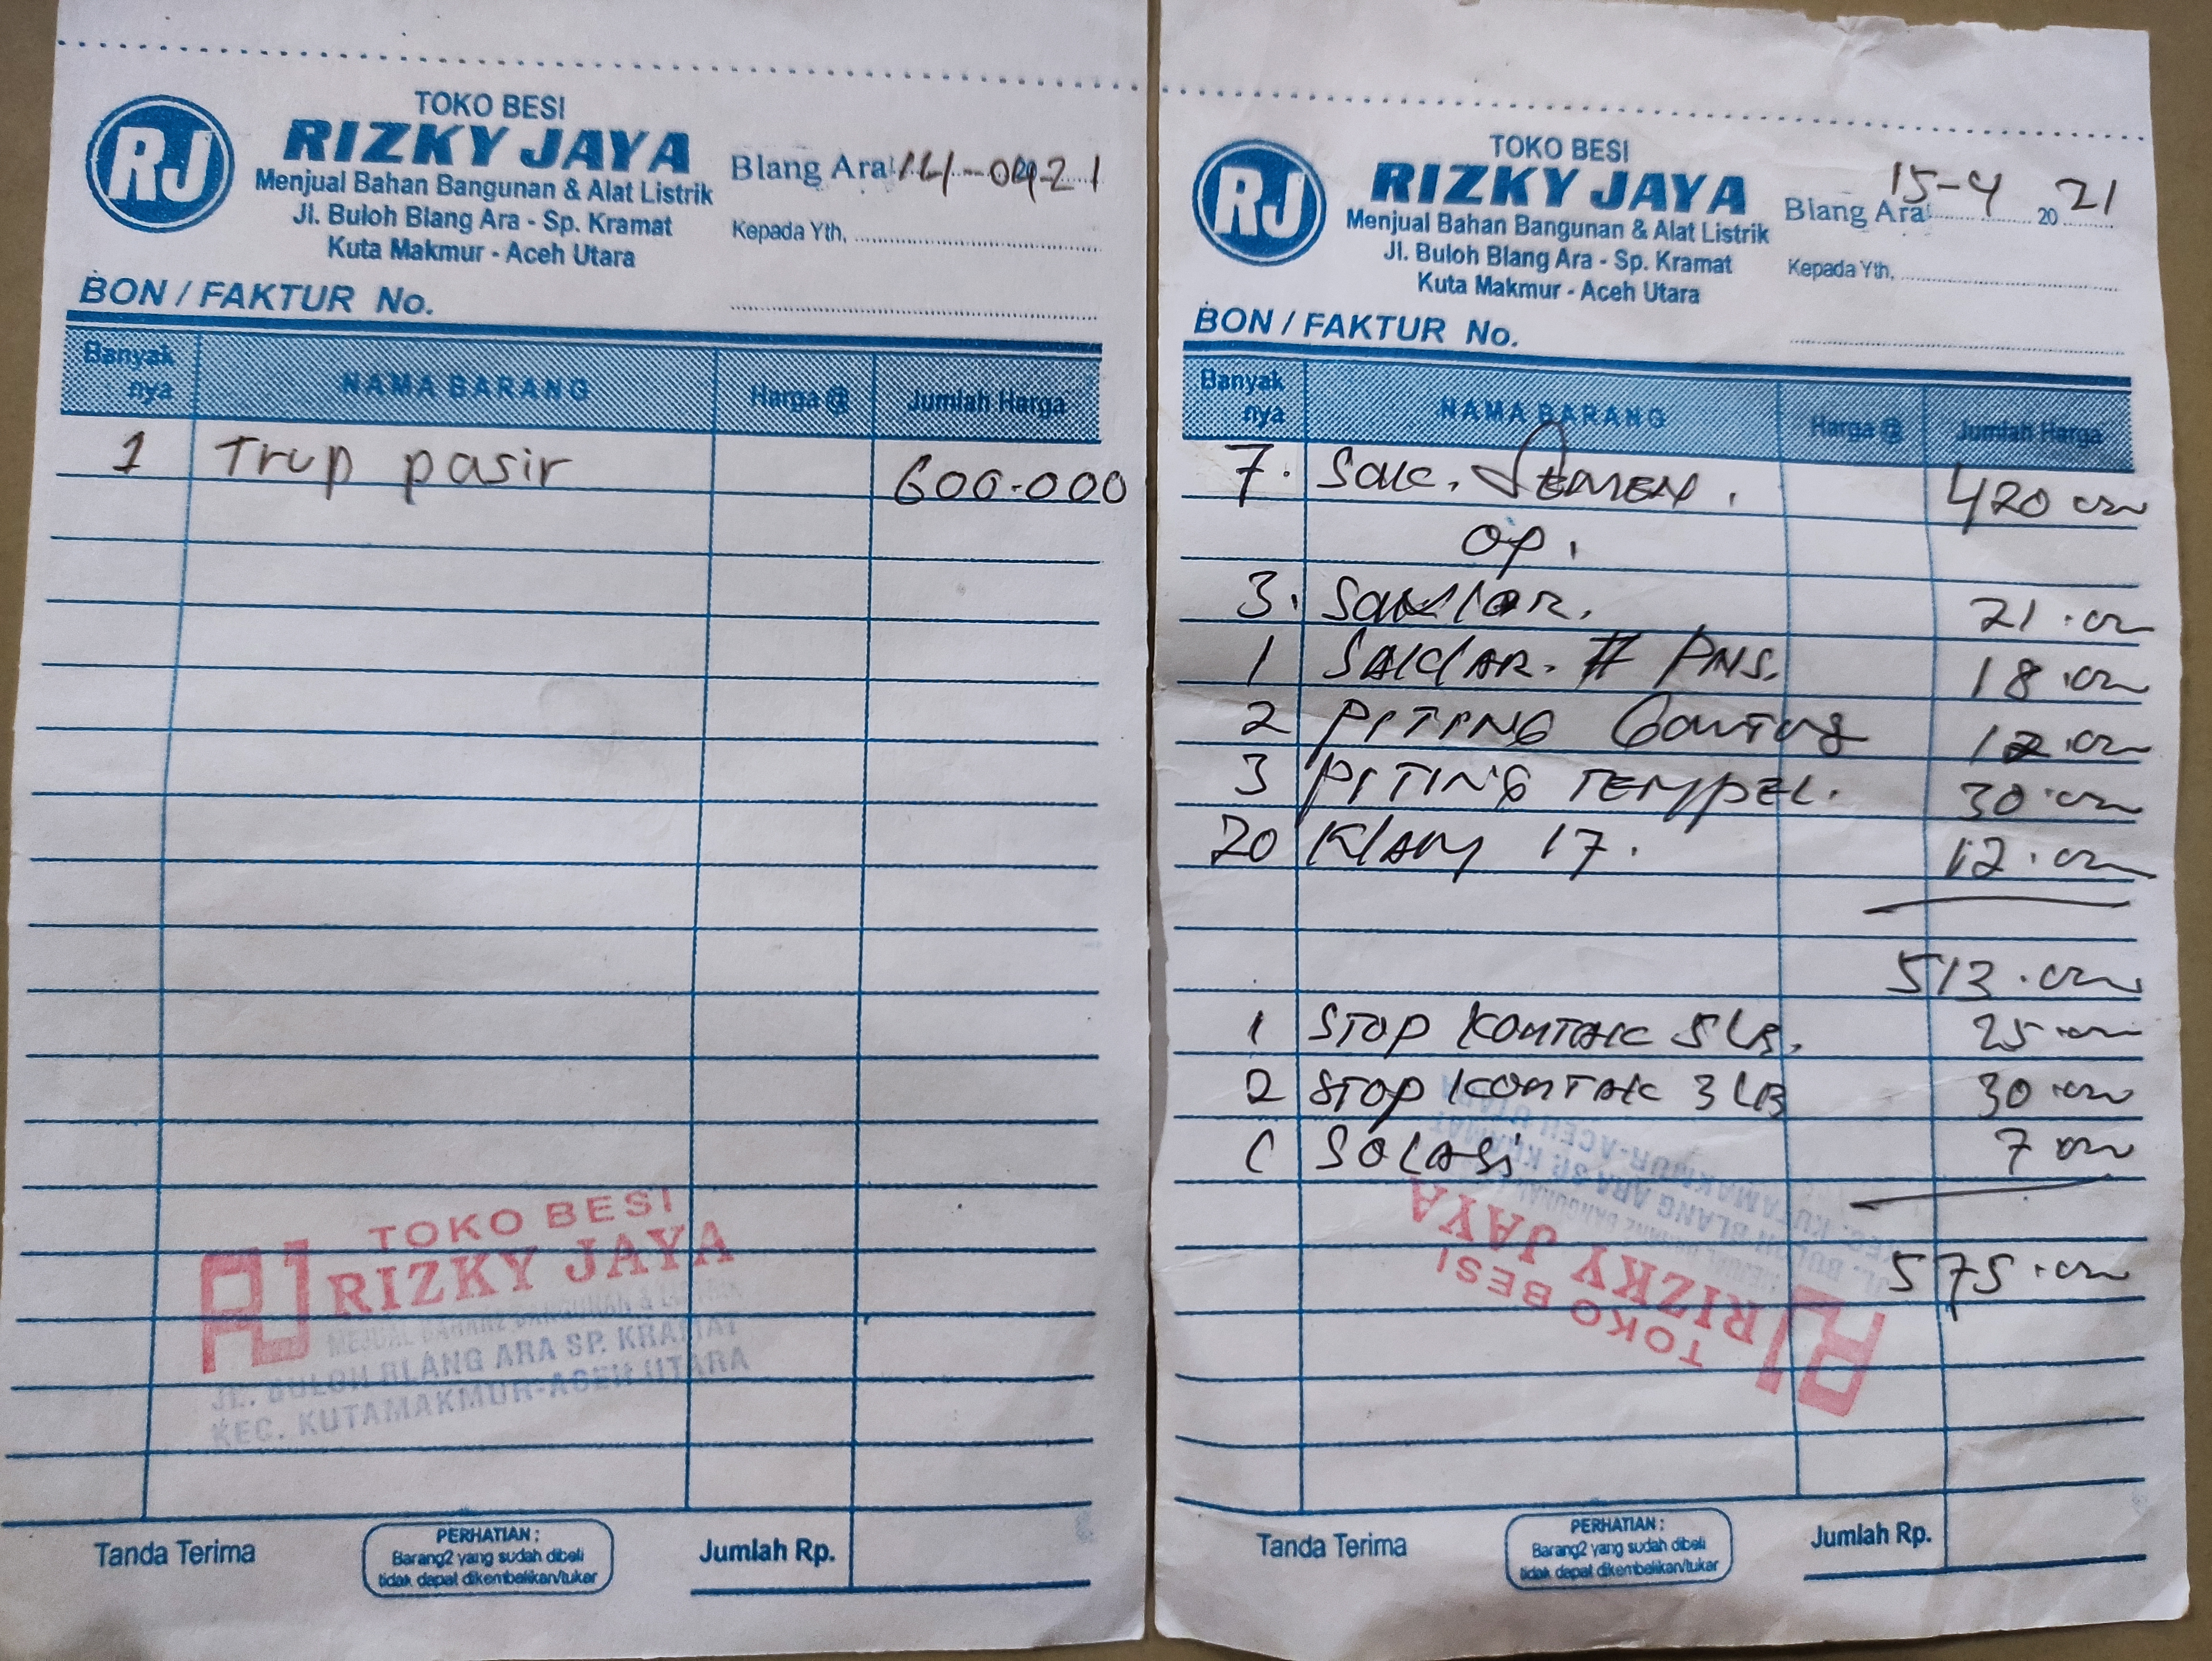 TOKO BESI
RJ RIZKY JAYA
Menjual Bahan Bangunan & Alat Listrik
Jl. Buloh Blang Ara - Sp. Kramat
Kuta Makmur - Aceh Utara
Blang Ara, 14-04-21
Kepada Yth,
BON / FAKTUR No.
Banyak nya NAMA BARANG Harga @ Jumlah Harga
1 Trup pasir 600.000
TOKO BESI
RJ RIZKY JAYA
MEJUAL BAHAN2 BANGUNAN & LISTRIK
JL. BULOH BLANG ARA SP. KRAMAT
KEC. KUTAMAKMUR-ACEH UTARA
Tanda Terima
PERHATIAN :
Barang2 yang sudah dibeli
tidak dapat dikembalikan/tukar
Jumlah Rp.
TOKO BESI
RJ RIZKY JAYA
Menjual Bahan Bangunan & Alat Listrik
Jl. Buloh Blang Ara - Sp. Kramat
Kuta Makmur - Aceh Utara
Blang Ara, 15-4 20 21
Kepada Yth,
BON / FAKTUR No.
Banyak nya NAMA BARANG Harga @ Jumlah Harga
7. Sak. Semen. 420 000
op.
3. Saklar. 21.000
1 Saklar. # PNS. 18.000
2 PITING Gantung 12.000
3 PITING TEMPEL. 30.000
20 Klam 17. 12.000
513.000
1 STOP KONTAK 5 LB. 25.000
2 STOP KONTAK 3 LB 30.000
1 SOLASi 7 000
575.000
TOKO BESI
RJ RIZKY JAYA
JL. BULOH BLANG ARA SP. KRAMAT
KEC. KUTAMAKMUR-ACEH UTARA
Tanda Terima
PERHATIAN :
Barang2 yang sudah dibeli
tidak dapat dikembalikan/tukar
Jumlah Rp.